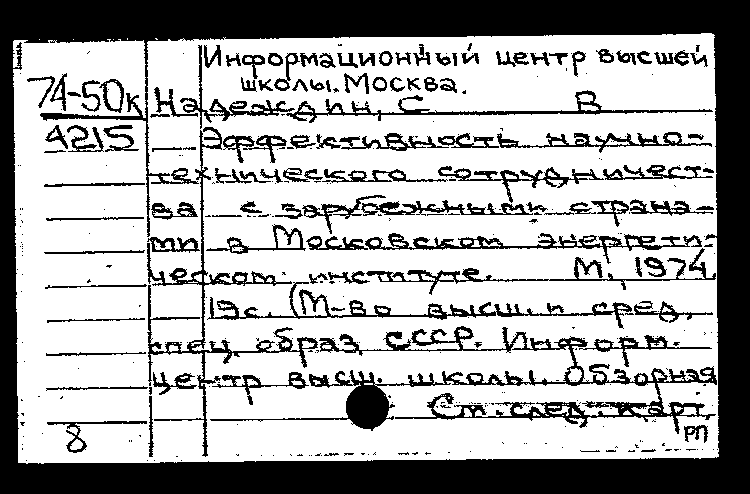 Информационный центр высшей
школы. Москва.
74-50к
Надеждин, С В
4215
Эффективность научно-
технического сотрудничест-
ва с зарубежными страна-
ми в Московском энергети-
ческом институте. М., 1974.
19с. (М-во высш. и сред.
спец. образ. СССР. Информ.
центр высш. школы. Обзорная
См. след. карт.
8
РП